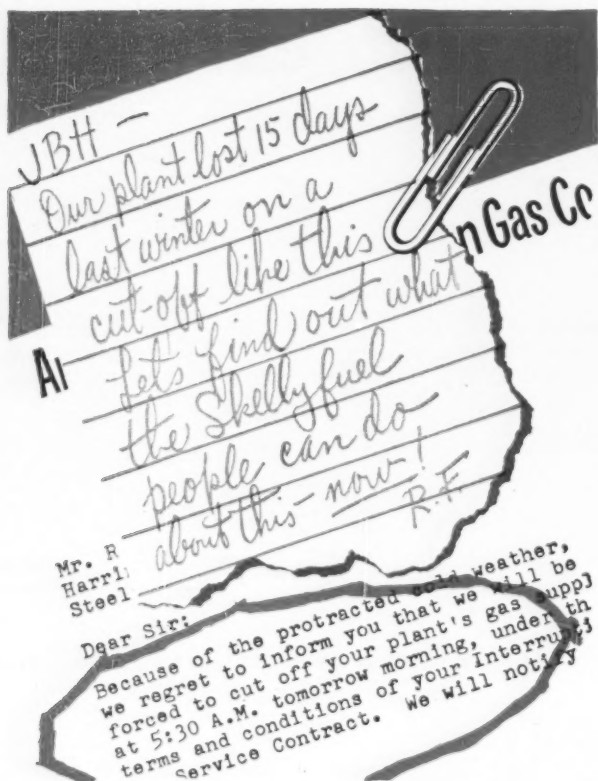 JBH —
Our plant lost 15 days
last winter on a
cut-off like this
Let's find out what
the Skellyfuel
people can do
about this - now!
R.F.
n Gas Co
Mr. R
Harri
Steel
Dear Sir:
Because of the protracted cold weather,
we regret to inform you that we will be
forced to cut off your plant's gas suppl
at 5:30 A.M. tomorrow morning, under th
terms and conditions of your Interrupti
Service Contract. We will notify